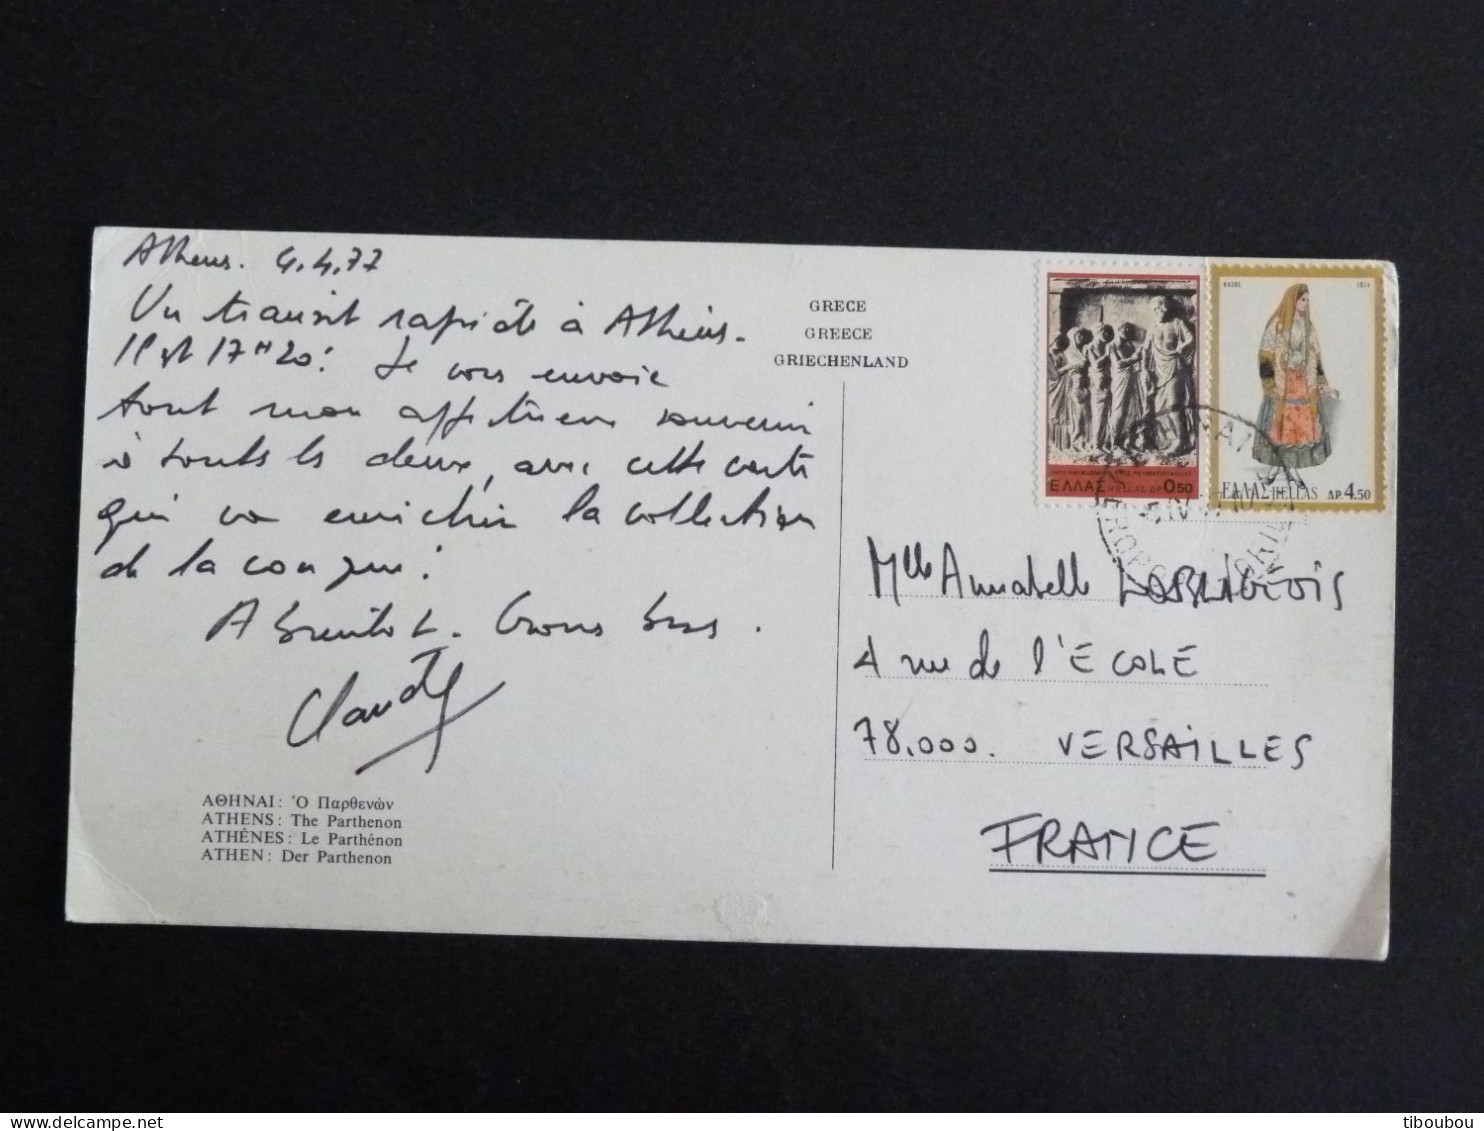 Athens. 4.4.77
Un transit rapide à Athènes.
Il est 17H20! Je vous envoie
tout mon affectueux souvenir
à toutes les deux, avec cette carte
qui va enrichir la collection
de la
A bientôt. Gros
Claude
ΑΘΗΝΑΙ: Ὁ Παρθενών
ATHENS: The Parthenon
ATHÈNES: Le Parthénon
ATHEN: Der Parthenon
GRECE
GREECE
GRIECHENLAND
ΕΛΛΑΣ HELLAS ΔΡ 0.50
1974
ΕΛΛΑΣ-HELLAS ΔΡ. 4.50
Mlle Annabelle
4 rue de l'ECOLE
78.000. VERSAILLES
FRANCE
tiboubou